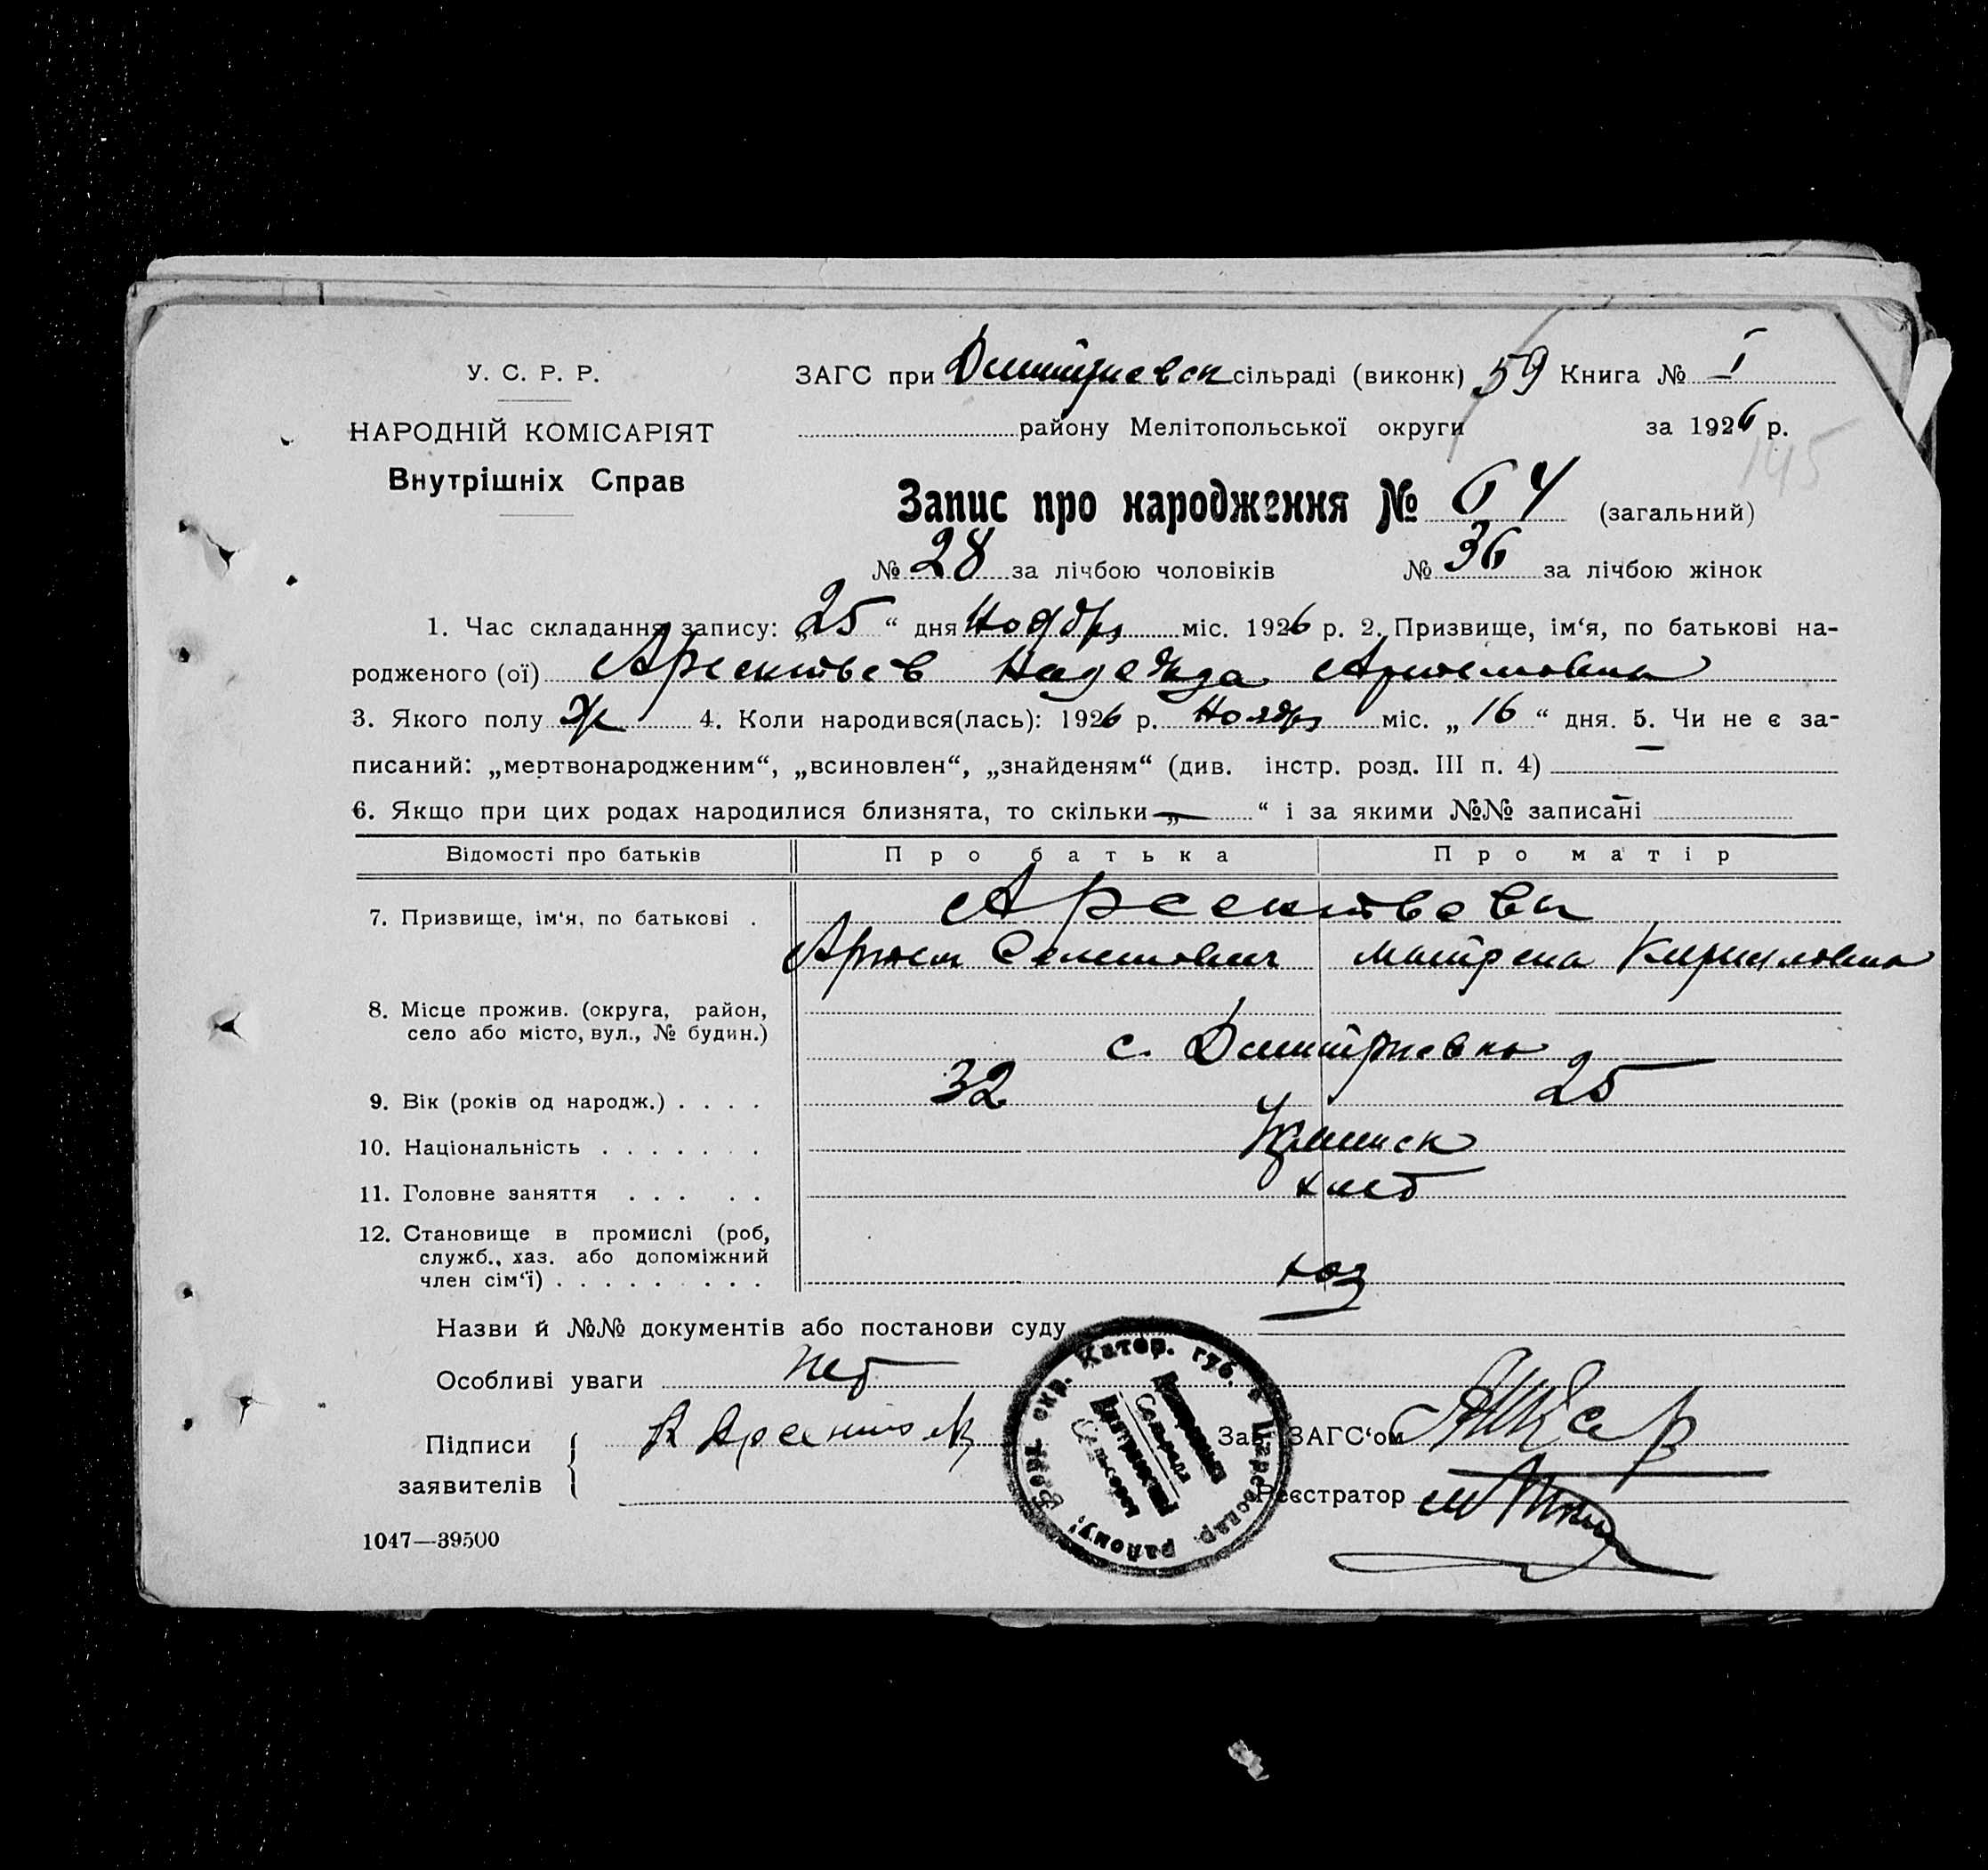 У. С. Р. Р.
НАРОДНІЙ КОМІСАРІЯТ
Внутрішніх Справ
ЗАГС при Дмитриевск сільраді (виконк) 59 Книга № I
району Мелітопольської округи за 1926 р.
145
Запис про народження № 64 (загальний)
№ 28 за лічбою чоловіків № 36 за лічбою жінок
1. Час складання запису: „25“ дня Ноября міс. 1926 р. 2. Призвище, ім‘я, по батькові на-
родженого (ої) Надежда Артемовна
3. Якого полу Ж 4. Коли народився(лась): 1926 р. Ноября міс. „16“ дня. 5. Чи не є за-
писаний: „мертвонародженим“, „всиновлен“, „знайденям“ (див. інстр. розд. III п. 4) —
6. Якщо при цих родах народилися близнята, то скільки „—“ і за якими №№ записані —
Відомості про батьків Про батька Про матір
7. Призвище, ім‘я, по батькові .
Артем Семенович Матрена Кирилловна
8. Місце прожив. (округа, район,
село або місто, вул., № будин.) с. Дмитриевка
9. Вік (років од народж.) . . . . 32 25
10. Національність . . . . . . .
11. Головне заняття . . . . . хлеб
12. Становище в промислі (роб,
служб., хаз. або допоміжний
член сім‘ї) . . . . . . . . . хоз
Назви й №№ документів або постанови суду
Особливі уваги Нет
Підписи
заявителів
Зав. ЗАГС‘ом
Реєстратор
окр. Катер. губ.
району
1047—39500